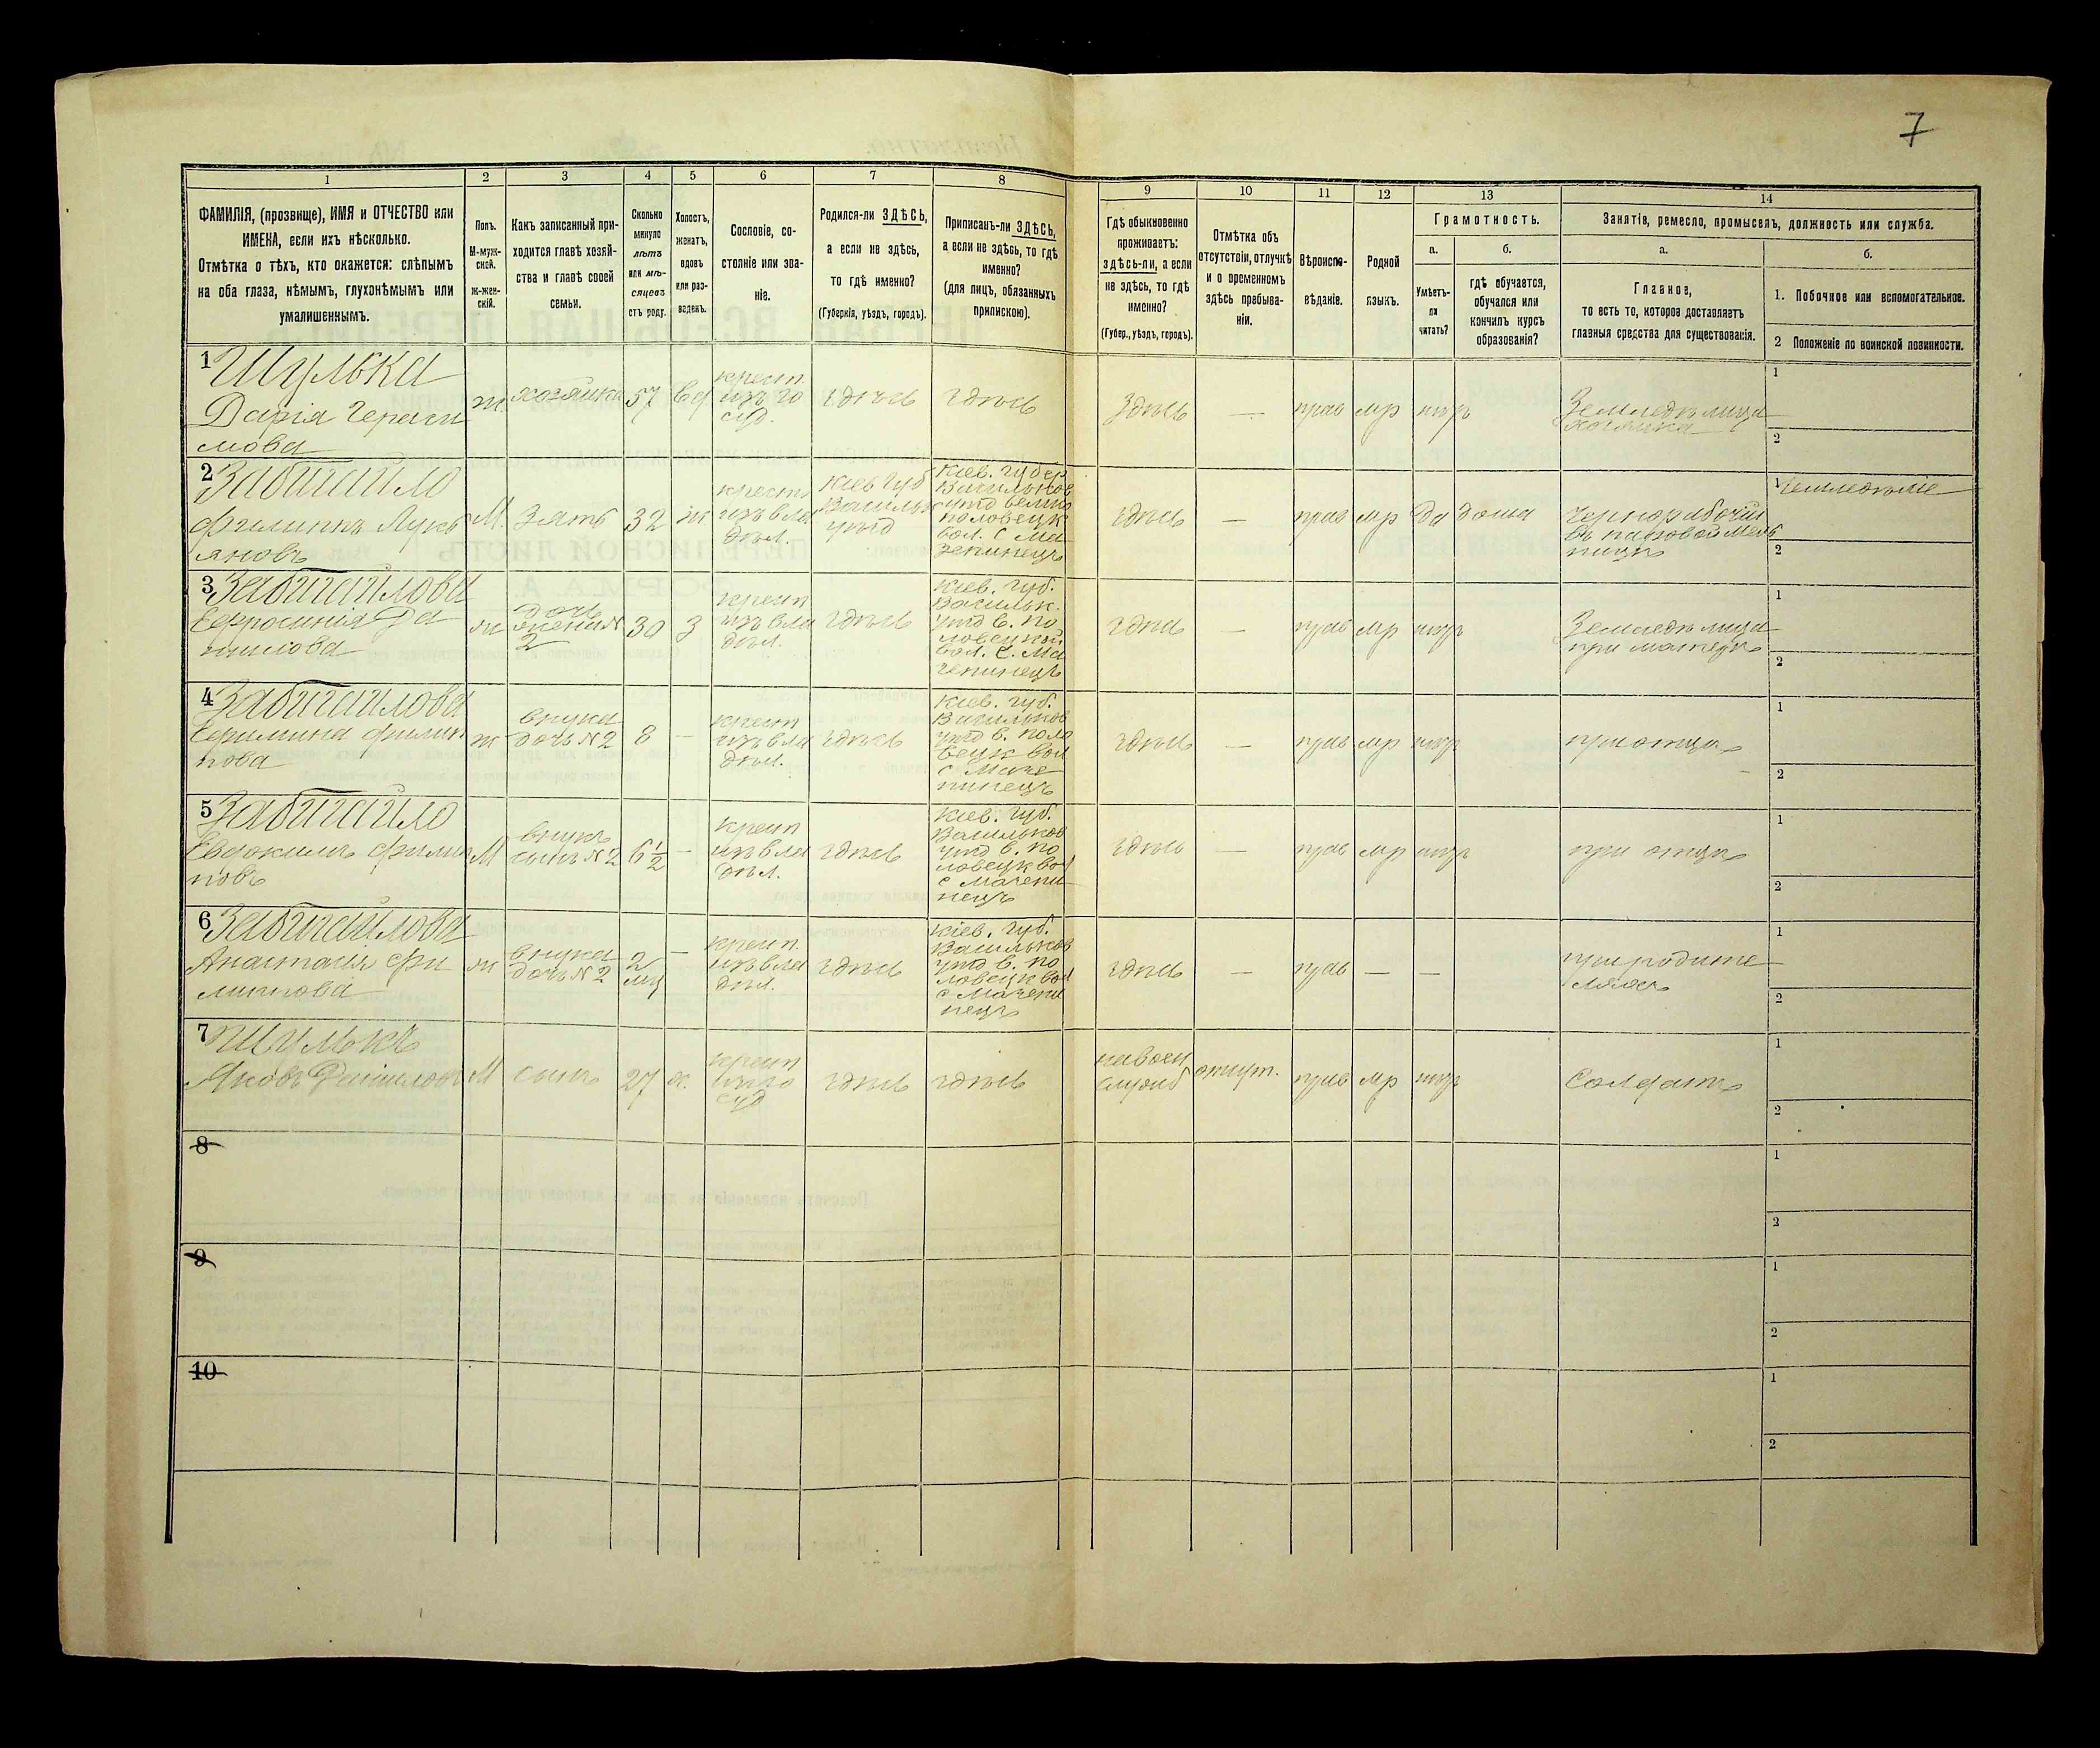 7
1
2
3
4
5
6
7
8
9
10
11
12
13
14
ФАМИЛІЯ, (прозвище), ИМЯ и ОТЧЕСТВО или
ИМЕНА, если ихъ нѣсколько.
Отмѣтка о тѣхъ, кто окажется: слѣпымъ
на оба глаза, нѣмымъ, глухонѣмымъ или
умалишеннымъ.
Полъ.
М-муж-
ской.
Ж-жен-
скій.
Какъ записанный при-
ходится главѣ хозяй-
ства и главѣ своей
семьи.
Сколько
минуло
лѣтъ
или мѣ-
сяцевъ
отъ роду.
Холостъ,
женатъ,
вдовъ
или раз-
веденъ.
Сословіе, со-
стояніе или зва-
ніе.
Родился-ли ЗДѢСЬ,
а если не здѣсь,
то гдѣ именно?
(Губернія, уѣздъ, городъ).
Приписанъ-ли ЗДѢСЬ,
а если не здѣсь, то гдѣ
именно?
(для лицъ, обязанныхъ
припискою).
Гдѣ обыкновенно
проживаетъ:
здѣсь-ли, а если
не здѣсь, то гдѣ
именно?
(Губер., уѣздъ, городъ).
Отмѣтка объ
отсутствіи, отлучкѣ
и о временномъ
здѣсь пребыва-
ніи.
Вѣроиспо-
вѣданіе.
Родной
языкъ.
Грамотность.
а.
б.
Умѣетъ-
ли
читать?
гдѣ обучается,
обучался или
кончилъ курсъ
образованія?
Занятія, ремесло, промыселъ, должность или служба.
а.
б.
Главное,
то есть то, которое доставляетъ
главныя средства для существованія.
1. Побочное или вспомогательное.
2 Положеніе по воинской повинности.
1 Шулька
Дарія Гераси
мова
ж
хозяйка
57
вд
крест.
изъ го
суд.
здѣсь
здѣсь
Здѣсь
—
прав
мр
нѣтъ
Земледѣлица
хозяйка
1
2
2 Забигайло
Филиппъ Лукь
яновъ
М.
Зять
32
ж
крестъ
изъ вла
дѣл.
Кіев Губ
Васильк
уѣзд
Кіев. Губер.
Васильков
уѣзд велико
половецк
вол. с Ма
зепинецъ
здѣсь
—
прав
мр
да
дома
Чернорабочій
въ паровой мель
ницѣ
1 Земледѣліе
2
3 Забигайлова
Ефросинія Да
нилова
ж
дочь
жена №
2
30
З
крест
изъ вла
дѣл.
здѣсь
Кіев. Губ.
Васильк.
уѣзд в. по
ловецкой
вол. с. Ма
зепинецъ
здѣсь
—
прав
мр
нѣтъ
Земледѣлица
при матерѣ
1
2
4 Забигайлова
филип
пова
ж
внука
дочь №2
8
—
крест
изъ вла
дѣл.
здѣсь
Кіев. Губ.
Васильков
уѣзд в. поло
вецк вол
с Мазе
пинецъ
здѣсь
—
прав
мр
нѣтъ
при отцѣ
1
2
5 Забигайло
Евдокимъ Филип
повъ
М
внукъ
сынъ №2
6½
—
крест
изъ вла
дѣл.
здѣсь
Кіев. Губ.
Васильков
уѣзд в. по
ловецк вол
с Мазепи
нецъ
здѣсь
—
прав
мр
нѣтъ
при отцѣ
1
2
6 Забигайлова
Анастасія Фи
липпова
ж
внука
дочь №2
2
мц
—
крест.
изъ вла
дѣл.
здѣсь
Кіев. Губ.
Васильков
уѣзд в. по
ловецк вол
с Мазепи
нецъ
здѣсь
—
прав
—
—
при родите
ляхъ
1
2
7 Шулька
Яковъ Данилов
М
сынъ
27
х.
крест
изъ го
суд
здѣсь
здѣсь
на воен
служб
отсут.
прав
мр
нѣтъ
Солдатъ
1
2
8
1
2
9
1
2
10
1
2